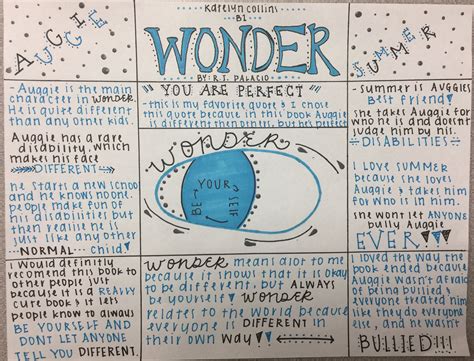 Katelyn Collini
B1
WONDER
BY: R.J. PALACIO
AUGGIE
SUMMER
- Auggie is the main
character in WONDER.
He is quite different
than any other kids.
Auggie has a rare
disability, which
makes his face
DIFFERENT
he starts a new school
and he knows noone.
people make fun of
his disabilities but
then realise he is
just like any other
NORMAL child
"YOU ARE PERFECT"
- this is my favorite quote & I chose
this quote because in this book Auggie
is different then others, but his perfect
WONDER
BE YOUR SELF
- summer is AUGGIES
Best friend
she takes Auggie for
who he is and doesnt
judge him by his
DISABILITIES
I love SUMMER
because she loves
Auggie & takes him
for Who is in and
she wont let ANYONE
bully Auggie
EVER!!!
I Would definitly
recomend this book to
other people just
because it is a REALLY
cute book & it lets
people know to always
BE YOURSELF AND
DONT LET ANYONE
TELL YOU DIFFERENT.
WONDER means alot to me
because it shows that it is okay
to be different, but ALWAYS
be yourself WONDER
relates to the world because
everyone is DIFFERENT in
their own Way
I loved the way the
book ended because
Auggie wasn't afraid
of being bullied and
everyone treated him
like they do everyone
else and he Wasn't
BULLIED!!!